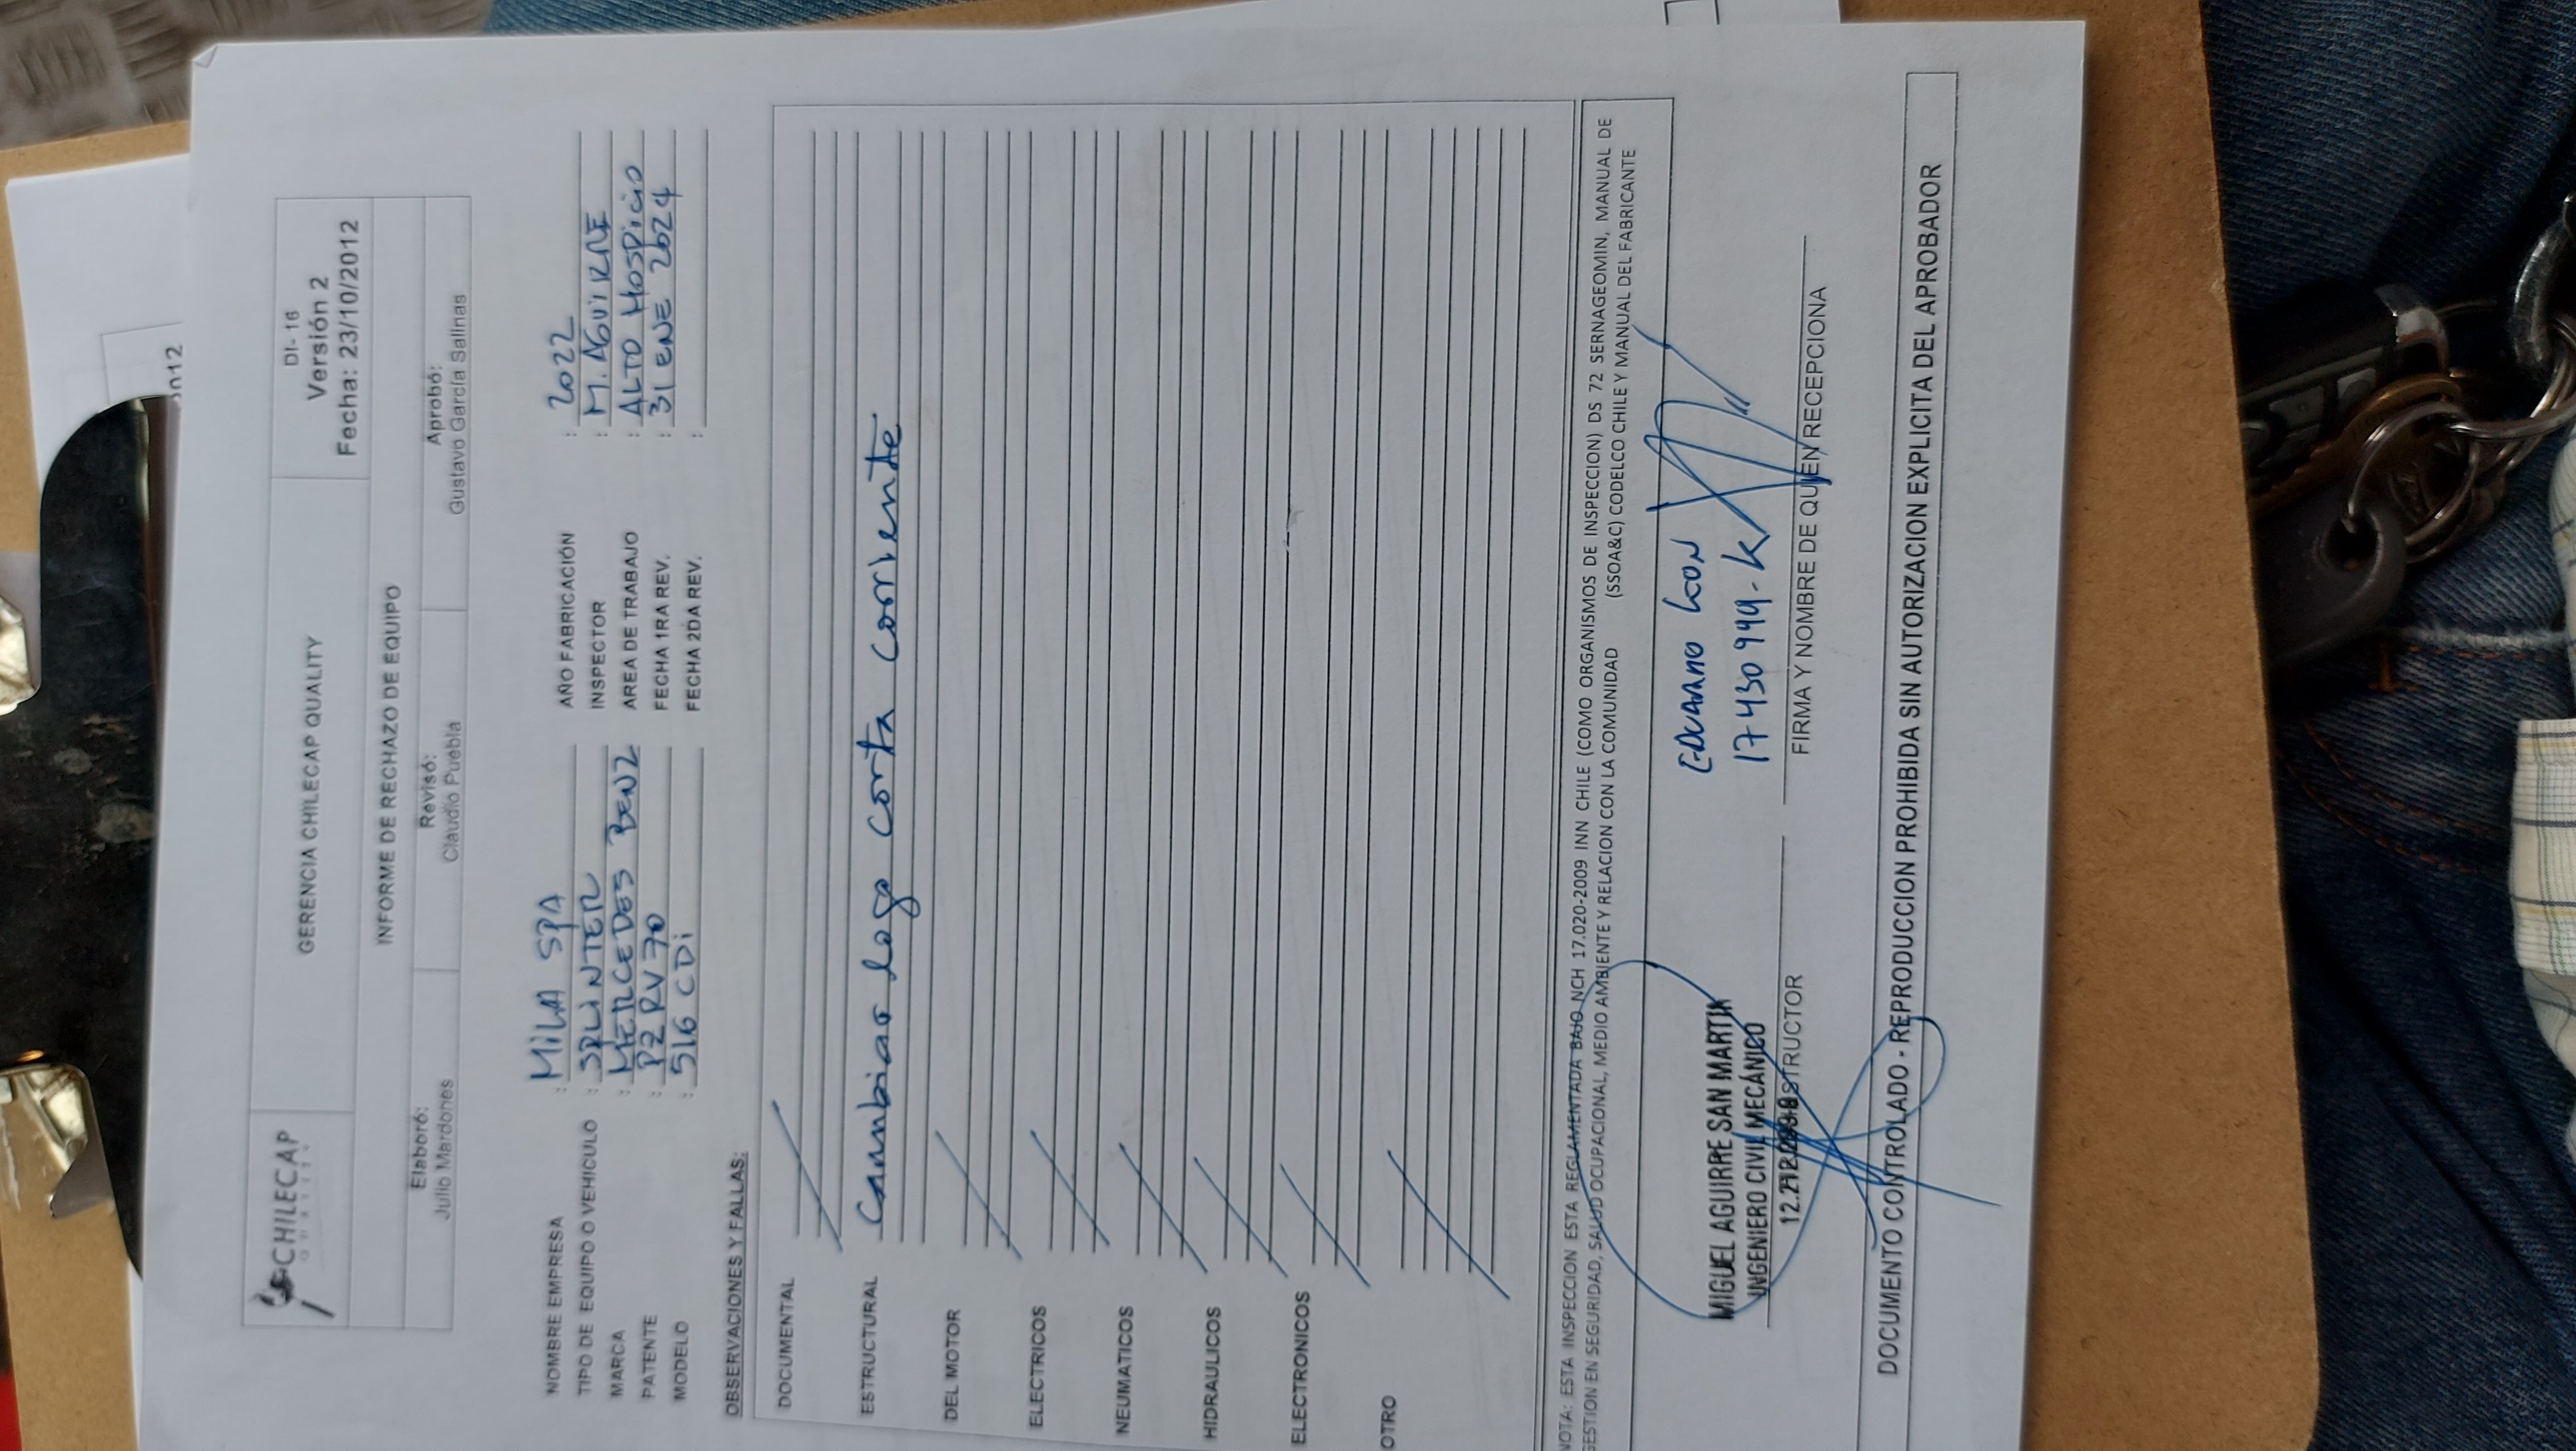 CHILECAP
QUALITY
GERENCIA CHILECAP QUALITY
DI- 16
Versión 2
Fecha: 23/10/2012
INFORME DE RECHAZO DE EQUIPO
Elaboró:
Julio Mardones
Revisó:
Claudio Puebla
Aprobó:
Gustavo García Salinas
NOMBRE EMPRESA : MILA SPA
AÑO FABRICACIÓN : 2022
TIPO DE EQUIPO O VEHICULO : SPLINTER
INSPECTOR : M. AGUIRRE
MARCA : MERCEDES BENZ
AREA DE TRABAJO : ALTO HOSPICIO
PATENTE : PZRV70
FECHA 1RA REV. : 31 ENE 2024
MODELO : 516 CDi
FECHA 2DA REV. :
OBSERVACIONES Y FALLAS:
DOCUMENTAL
ESTRUCTURAL Cambiar logo corta corriente
DEL MOTOR
ELECTRICOS
NEUMATICOS
HIDRAULICOS
ELECTRONICOS
OTRO
NOTA: ESTA INSPECCION ESTA REGLAMENTADA BAJO NCH 17.020-2009 INN CHILE (COMO ORGANISMOS DE INSPECCION) DS 72 SERNAGEOMIN, MANUAL DE
GESTION EN SEGURIDAD, SALUD OCUPACIONAL, MEDIO AMBIENTE Y RELACION CON LA COMUNIDAD (SSOA&C) CODELCO CHILE Y MANUAL DEL FABRICANTE
MIGUEL AGUIRRE SAN MARTIN
INGENIERO CIVIL MECÁNICO
EDUARDO LEON
17430999-K
FIRMA Y NOMBRE DE QUIEN RECEPCIONA
DOCUMENTO CONTROLADO - REPRODUCCION PROHIBIDA SIN AUTORIZACION EXPLICITA DEL APROBADOR